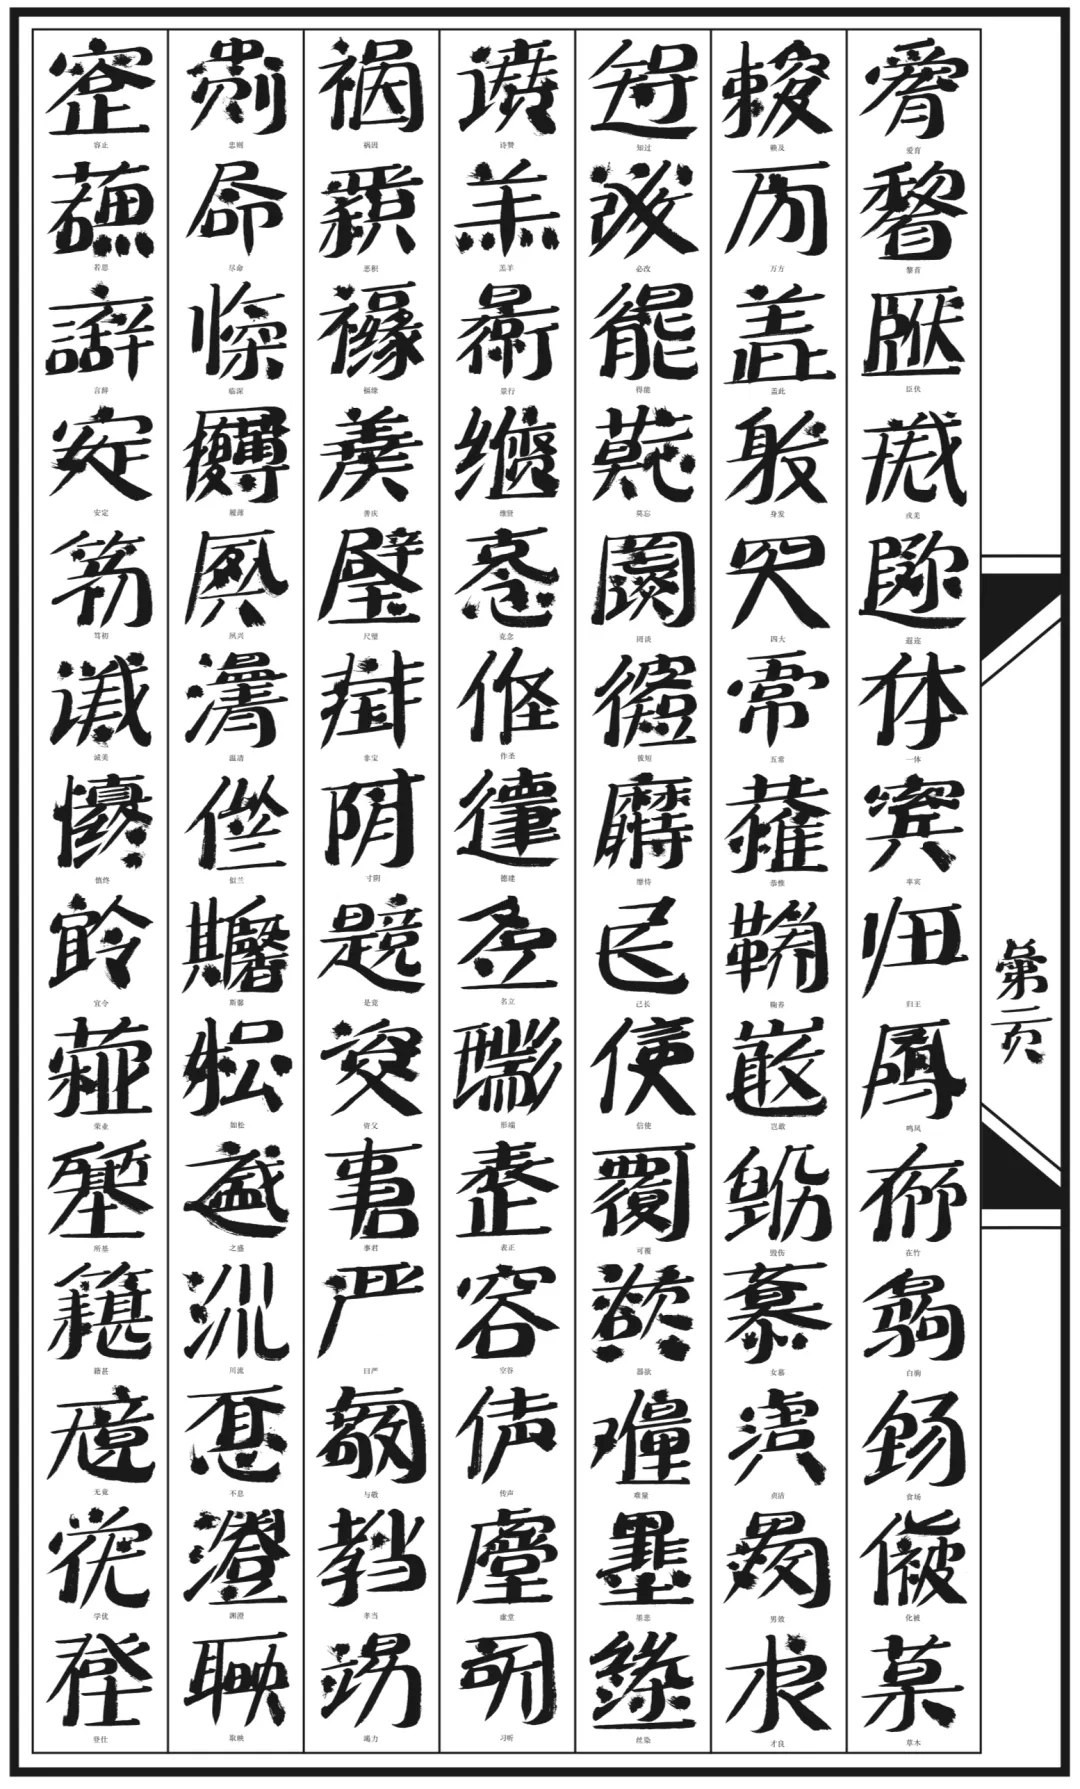 第二页
爱育 黎首 臣伏 戎羌 遐迩 一体 率宾 归王 鸣凤 在竹 白驹 食场 化被 草木
赖及 万方 盖此 身发 四大 五常 恭惟 鞠养 岂敢 毁伤 女慕 贞洁 男效 才良
知过 必改 得能 莫忘 罔谈 彼短 靡恃 己长 信使 可覆 器欲 难量 墨悲 丝染
诗赞 羔羊 景行 维贤 克念 作圣 德建 名立 形端 表正 空谷 传声 虚堂 习听
祸因 恶积 福缘 善庆 尺璧 非宝 寸阴 是竞 资父 事君 曰严 与敬 孝当 竭力
忠则 尽命 临深 履薄 夙兴 温清 似兰 斯馨 如松 之盛 川流 不息 渊澄 取映
容止 若思 言辞 安定 笃初 诚美 慎终 宜令 荣业 所基 籍甚 无竟 学优 登仕